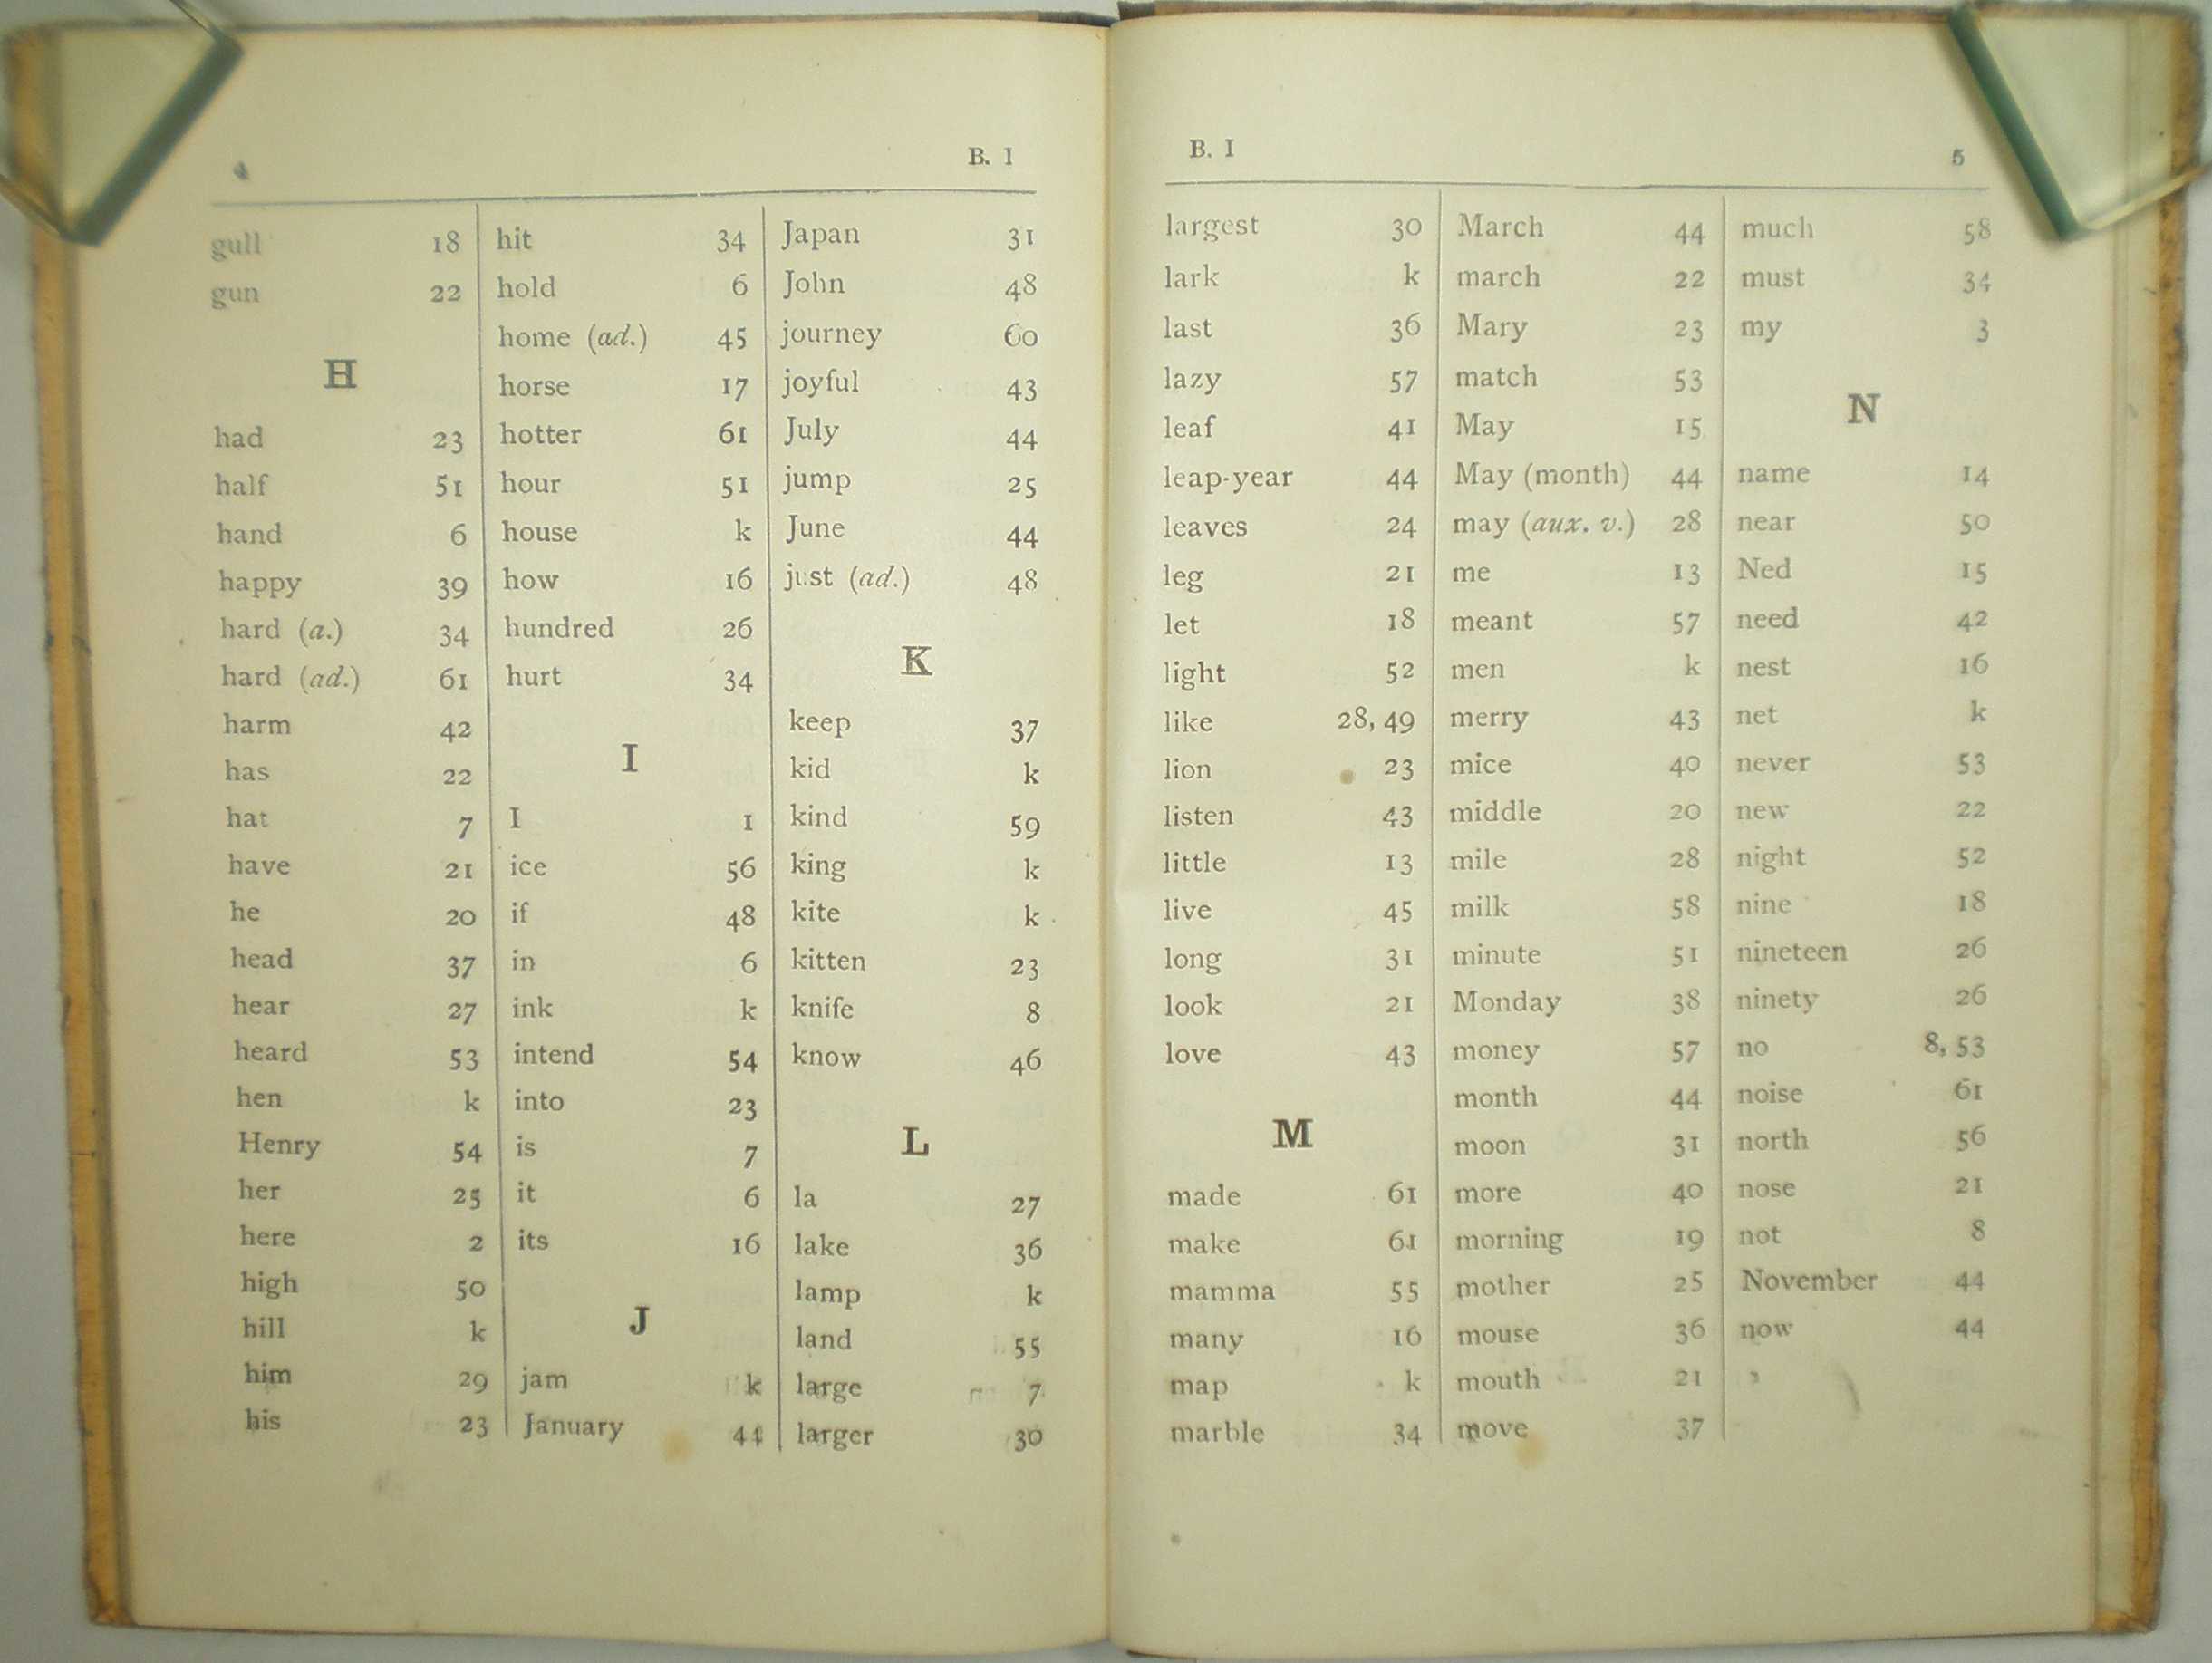 4
B. 1
gull 18
gun 22
H
had 23
half 51
hand 6
happy 39
hard (a.) 34
hard (ad.) 61
harm 42
has 22
hat 7
have 21
he 20
head 37
hear 27
heard 53
hen k
Henry 54
her 25
here 2
high 50
hill k
him 29
his 23
hit 34
hold 6
home (ad.) 45
horse 17
hotter 61
hour 51
house k
how 16
hundred 26
hurt 34
I
I 1
ice 56
if 48
in 6
ink k
intend 54
into 23
is 7
it 6
its 16
J
jam k
January 44
Japan 31
John 48
journey 60
joyful 43
July 44
jump 25
June 44
just (ad.) 48
K
keep 37
kid k
kind 59
king k
kite k
kitten 23
knife 8
know 46
L
la 27
lake 36
lamp k
land 55
large 7
larger 30
B. I
5
largest 30
lark k
last 36
lazy 57
leaf 41
leap-year 44
leaves 24
leg 21
let 18
light 52
like 28, 49
lion 23
listen 43
little 13
live 45
long 31
look 21
love 43
M
made 61
make 61
mamma 55
many 16
map k
marble 34
March 44
march 22
Mary 23
match 53
May 15
May (month) 44
may (aux. v.) 28
me 13
meant 57
men k
merry 43
mice 40
middle 20
mile 28
milk 58
minute 51
Monday 38
money 57
month 44
moon 31
more 40
morning 19
mother 25
mouse 36
mouth 21
move 37
much 58
must 34
my 3
N
name 14
near 50
Ned 15
need 42
nest 16
net k
never 53
new 22
night 52
nine 18
nineteen 26
ninety 26
no 8, 53
noise 61
north 56
nose 21
not 8
November 44
now 44